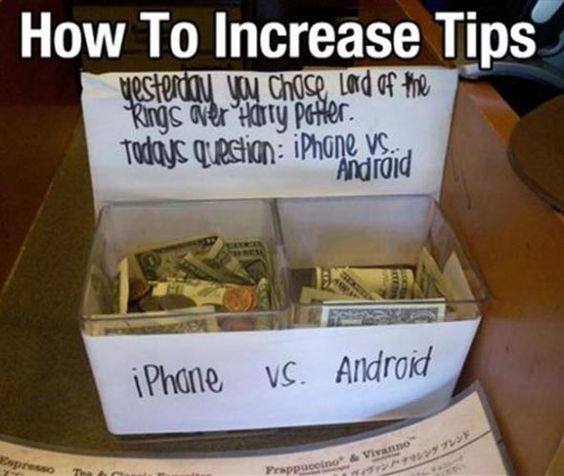 How To Increase Tips
yesterday you chose Lord of the
Rings over Harry Potter.
Todays question: iPhone vs.
Android
iPhone vs. Android
Espresso
Frappuccino® & Vivanno™